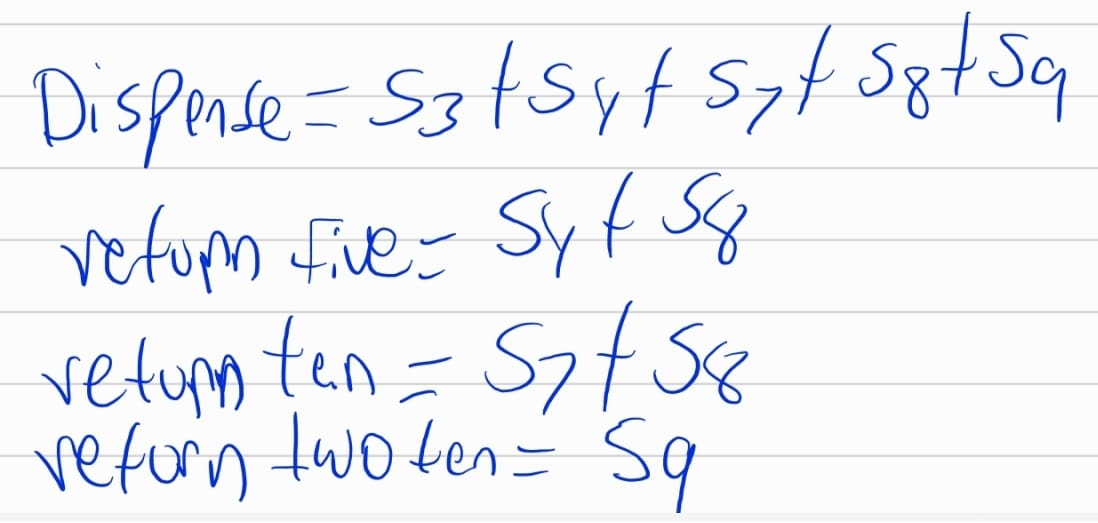 Dispense = S3 + S4 + S7 + S8 + S9
return five = S4 + S8
return ten = S7 + S8
return two ten = S9